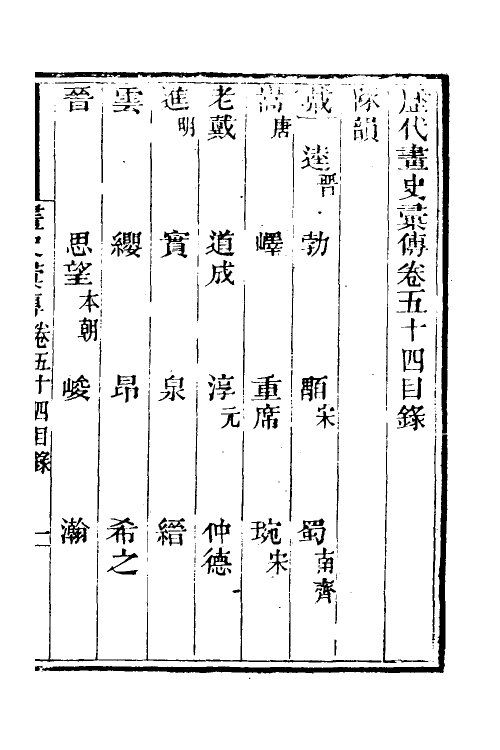 歴代畫史彙傳卷五十四目錄
隊韻
戴 逵晉 勃 顒宋 蜀南齊
嵩唐 嶧 重席 琬宋
老戴 道成 淳元 仲德
進明 賓 泉 縉
雲 纓 昂 希之
晉 思望本朝 峻 瀚
畫史彙傳卷五十四目錄 一